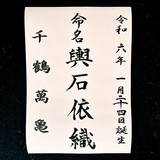 令和六年一月二十四日誕生
命名 輿石依織
千鶴萬亀